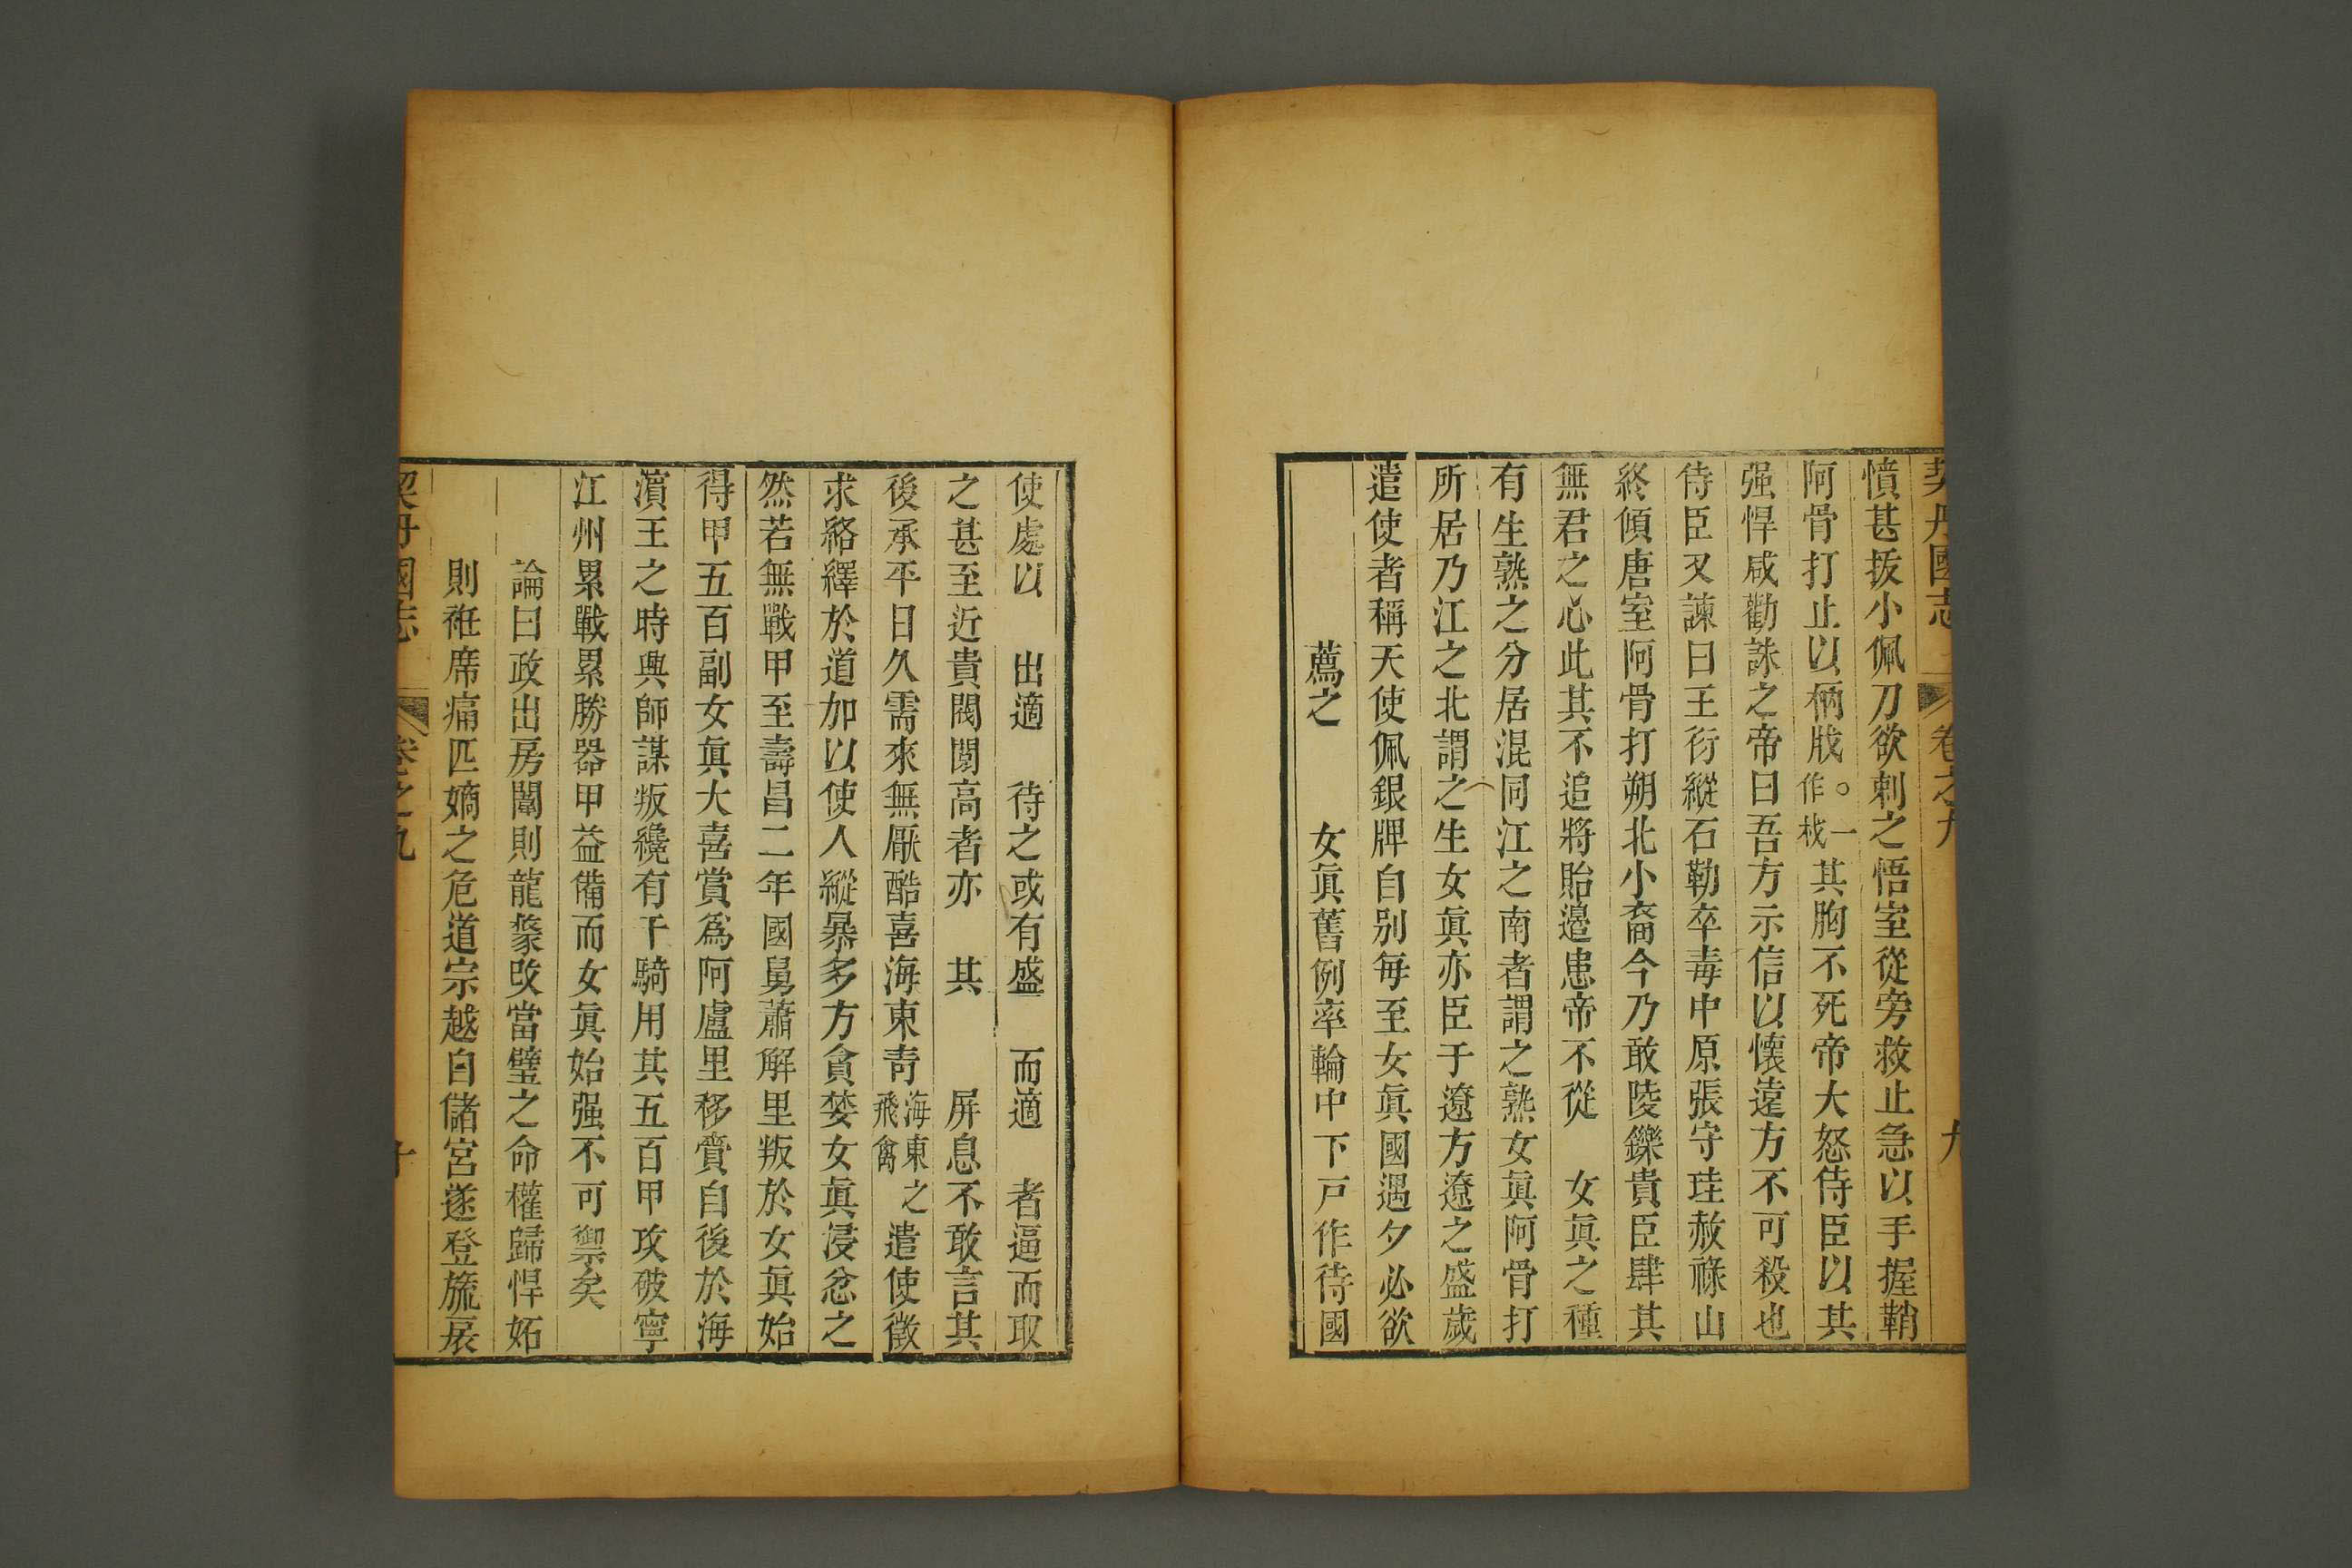 契丹國志 卷之九 九
憤甚拔小佩刀欲刺之悟室從旁救止急以手握鞘
阿骨打止以柄戕。一作栈其胸不死帝大怒侍臣以其
强悍咸勸誅之帝曰吾方示信以懷遠方不可殺也
待臣又諫曰王衍縱石勒卒毒中原張守珪赦祿山
終傾唐室阿骨打朔北小裔今乃敢陵鑠貴臣肆其
無君之心此其不追將貽邉患帝不從 女眞之種
有生熟之分居混同江之南者謂之熟女眞阿骨打
所居乃江之北謂之生女眞亦臣于遼方遼之盛歲
遣使者稱天使佩銀牌自别每至女眞國遇夕必欲
薦之 女眞舊例率輪中下戸作待國
使處以 出適 待之或有盛 而適 者逼而取
之甚至近貴閥閲高者亦 其 屏息不敢言其
後承平日久需來無厭酷喜海東青海東之飛禽遣使徵
求絡繹於道加以使人縱暴多方貪婪女眞浸忿之
然若無戰甲至壽昌二年國舅蕭解里叛於女眞始
得甲五百副女眞大喜賞爲阿盧里移賚自後於海
濵王之時興師謀叛纔有千騎用其五百甲攻破寧
江州累戰累勝器甲益備而女眞始强不可禦矣
論曰政出房闥則龍漦改當璧之命權歸悍妬
則袵席痛匹嫡之危道宗越自儲宮遂登旒扆
契丹國志 卷之九 十